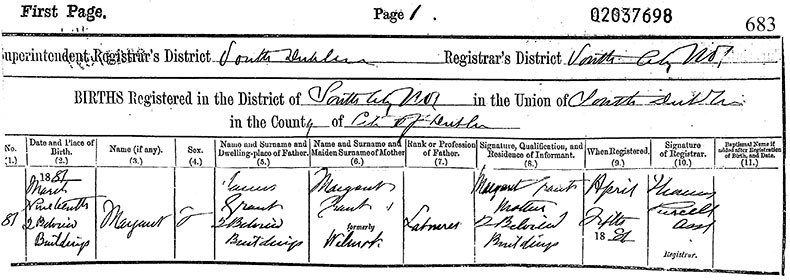 First Page.
Page 1.
02037698
683
Superintendent Registrar's District South Dublin
Registrar's District South City No 1
BIRTHS Registered in the District of South City No 1 in the Union of South Dublin
in the County of City of Dublin
No. (1.)
Date and Place of Birth. (2.)
Name (if any). (3.)
Sex. (4.)
Name and Surname and Dwelling-place of Father. (5.)
Name and Surname and Maiden Surname of Mother (6.)
Rank or Profession of Father. (7.)
Signature, Qualification, and Residence of Informant. (8.)
When Registered. (9.)
Signature of Registrar. (10.)
Baptismal Name if added after Registration of Birth, and Date. (11.)
81
1881
March
Nineteenth
2
Buildings
Margaret
F
James
Grant
2
Buildings
Margaret
Grant
formerly
Labourer
Margaret Grant
Mother
2
Buildings
April
Fifth
1881
Thomas
Purcell
Asst
Registrar.